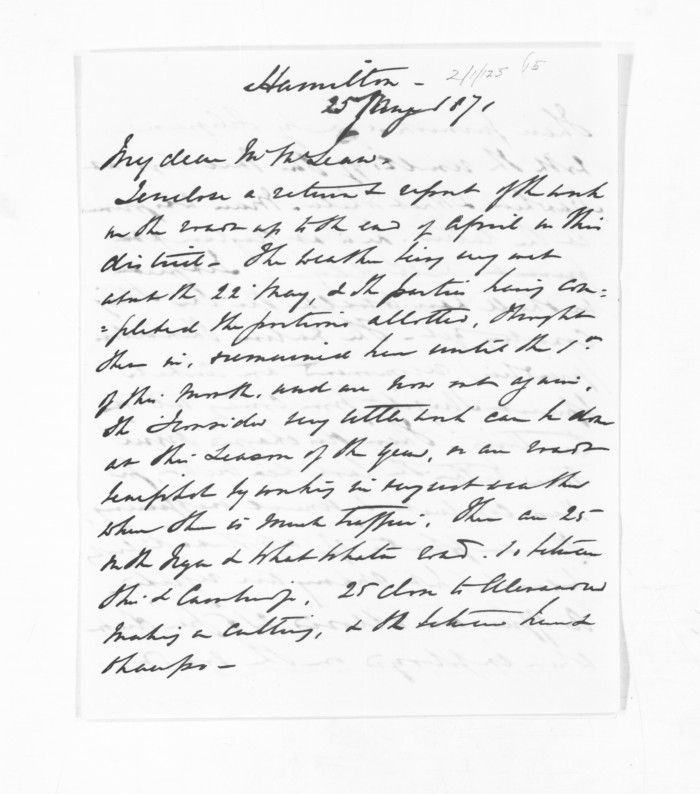 Hamilton -
2/1/125 15
25 Aug 1871
My dear Mr McLean,
I enclose a return & report of the work
on the roads up to the end of April in this
district - The weather being very wet
about the 22 May, & the parties having com=
=pleted the portions allotted, I brought
them in, remained here until the 1st
of this month, and are now out again,
I consider very little work can be done
at this season of the year, or are roads
benefited by working in very wet weather
when there is much traffic. There are 25
on the & Whatawhata road. 10 between
this & Cambridge, 25 close to Alexandra
making a cutting, & the between here &
Ohaupo -